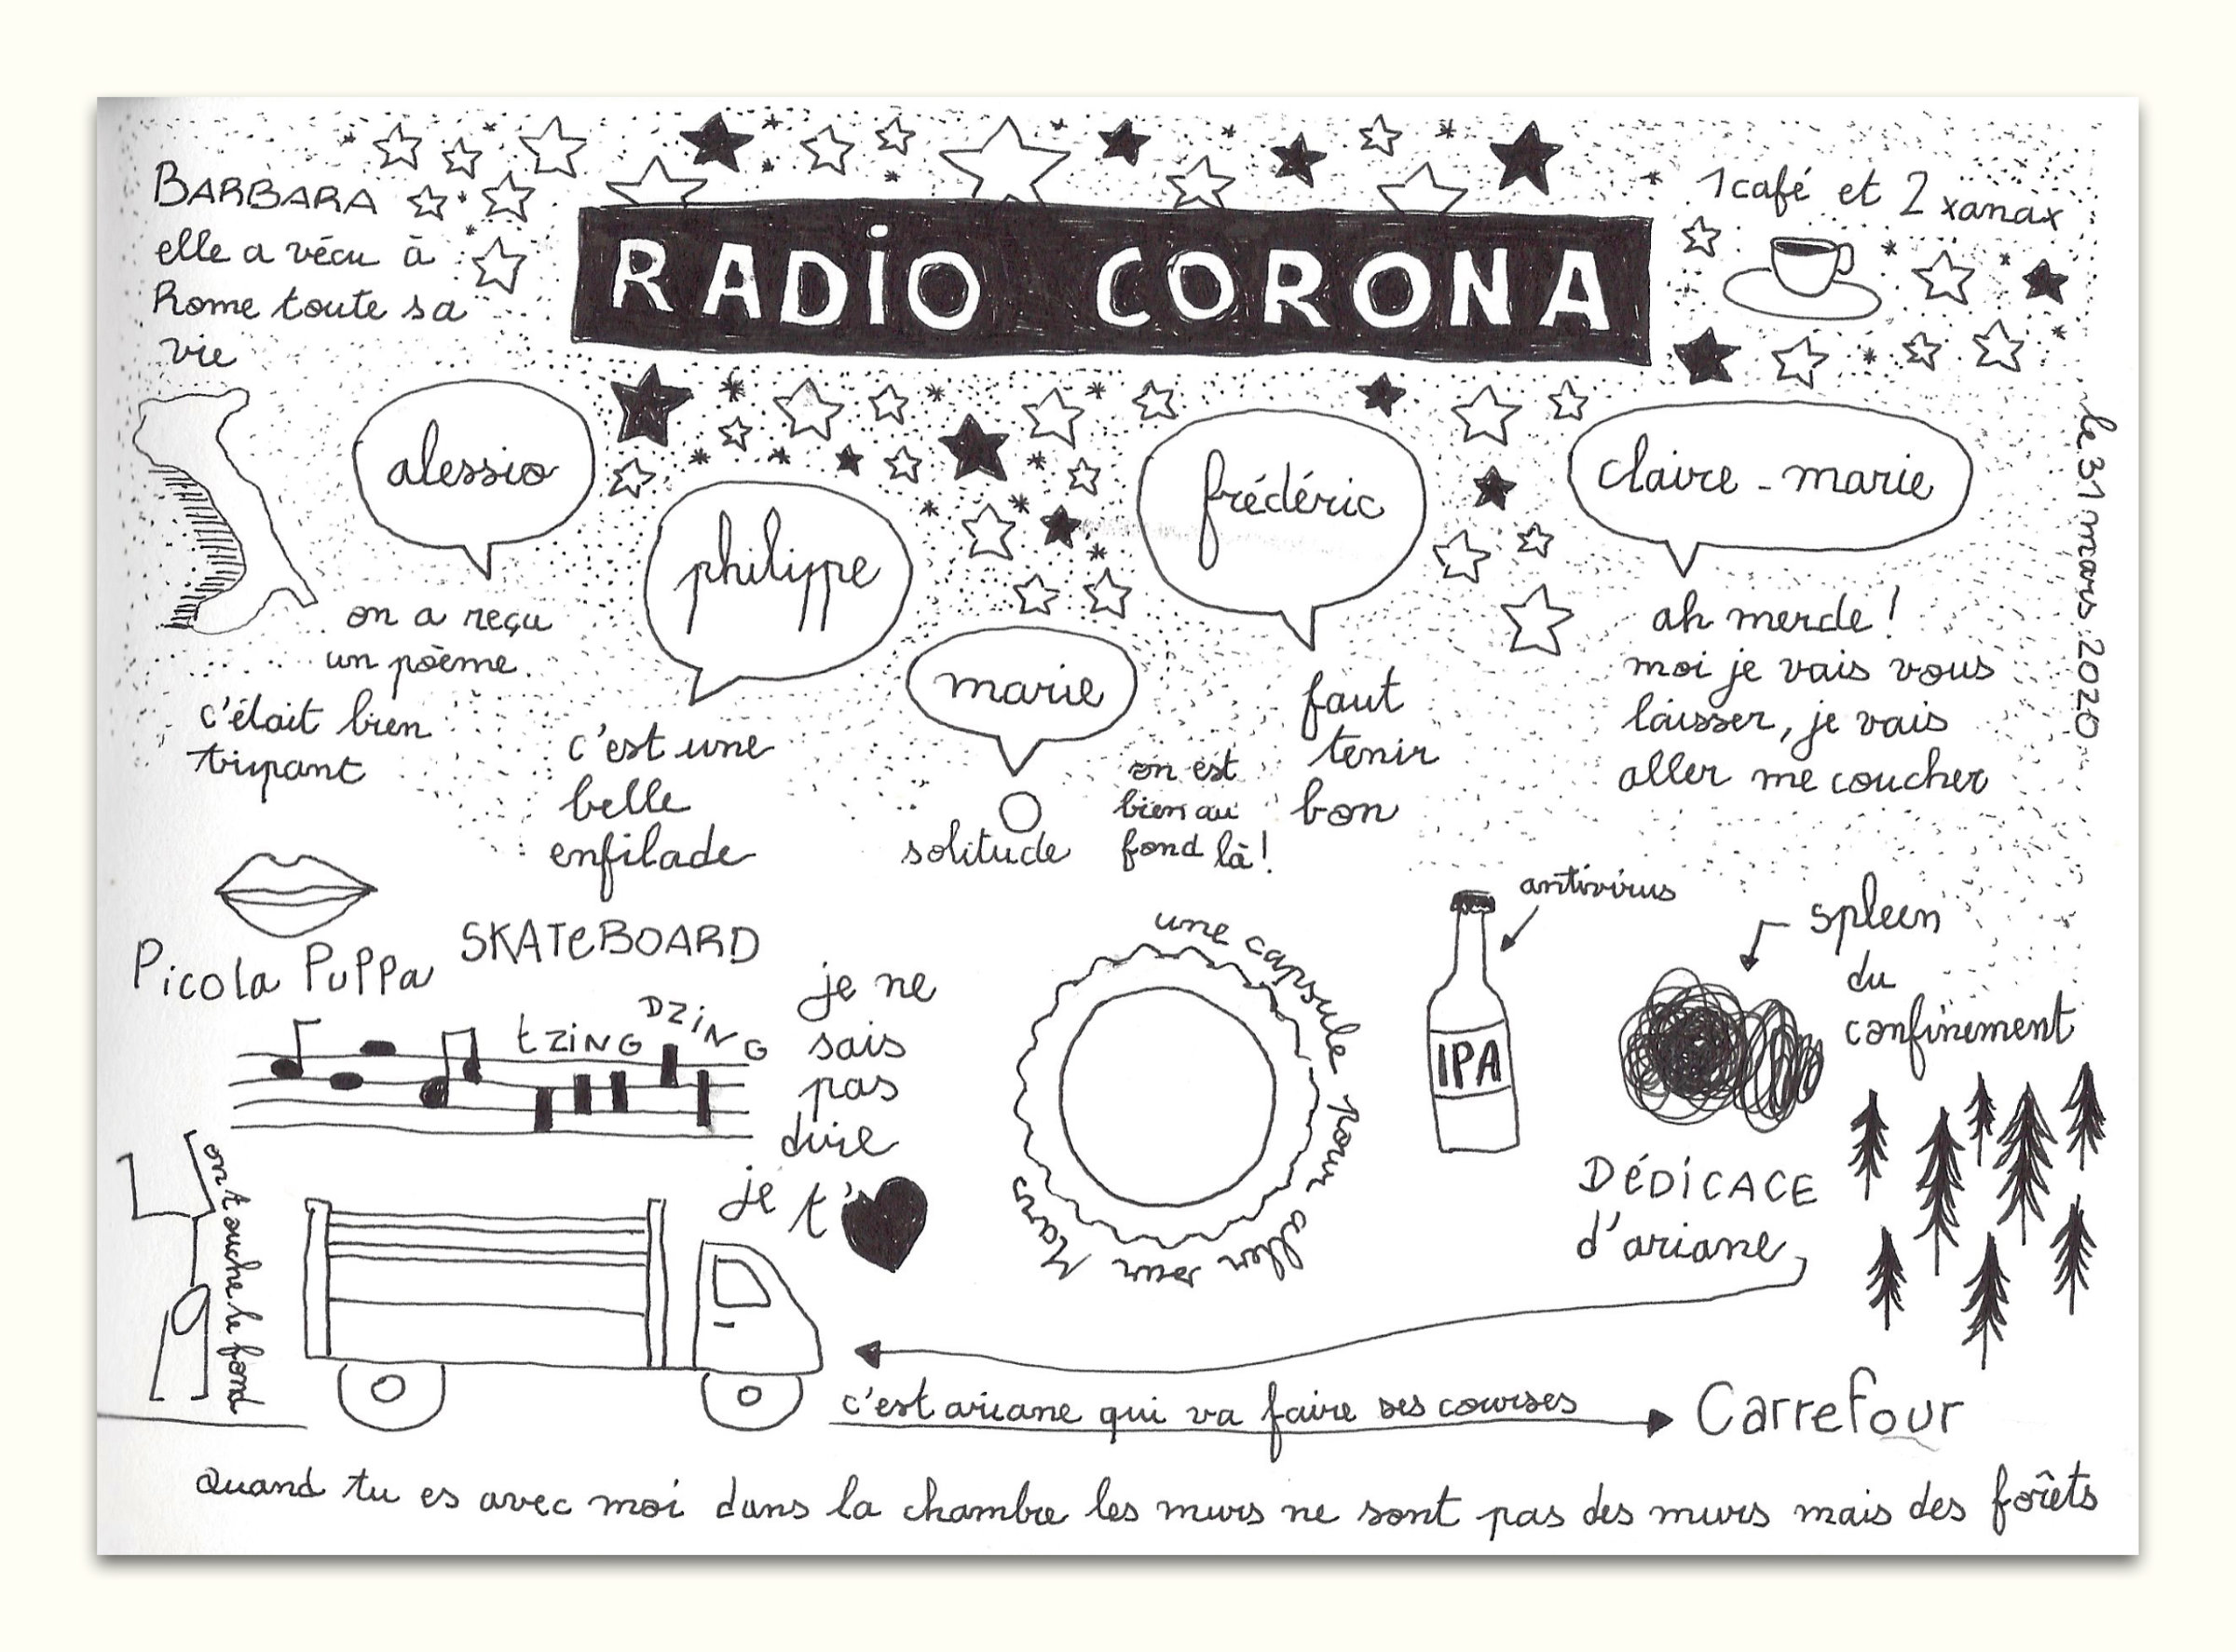 RADIO CORONA
BARBARA
elle a vécu à
Rome toute sa
vie
1 café et 2 xanax
le 31 mars 2020
alessio
on a reçu
un poème
c'était bien
tripant
philippe
c'est une
belle
enfilade
marie
solitude
on est
bien au
fond là!
frédéric
faut
tenir
bon
claire-marie
ah merde!
moi je vais vous
laisser, je vais
aller me coucher
Picola Puppa
SKATEBOARD
tzing
DZING
je ne
sais
pas
dire
je t'
une capsule pour aller sur Mars
IPA
antivirus
spleen
du
confinement
DÉDICACE
d'ariane
on touche le fond
c'est ariane qui va faire ses courses
Carrefour
Quand tu es avec moi dans la chambre les murs ne sont pas des murs mais des forêts